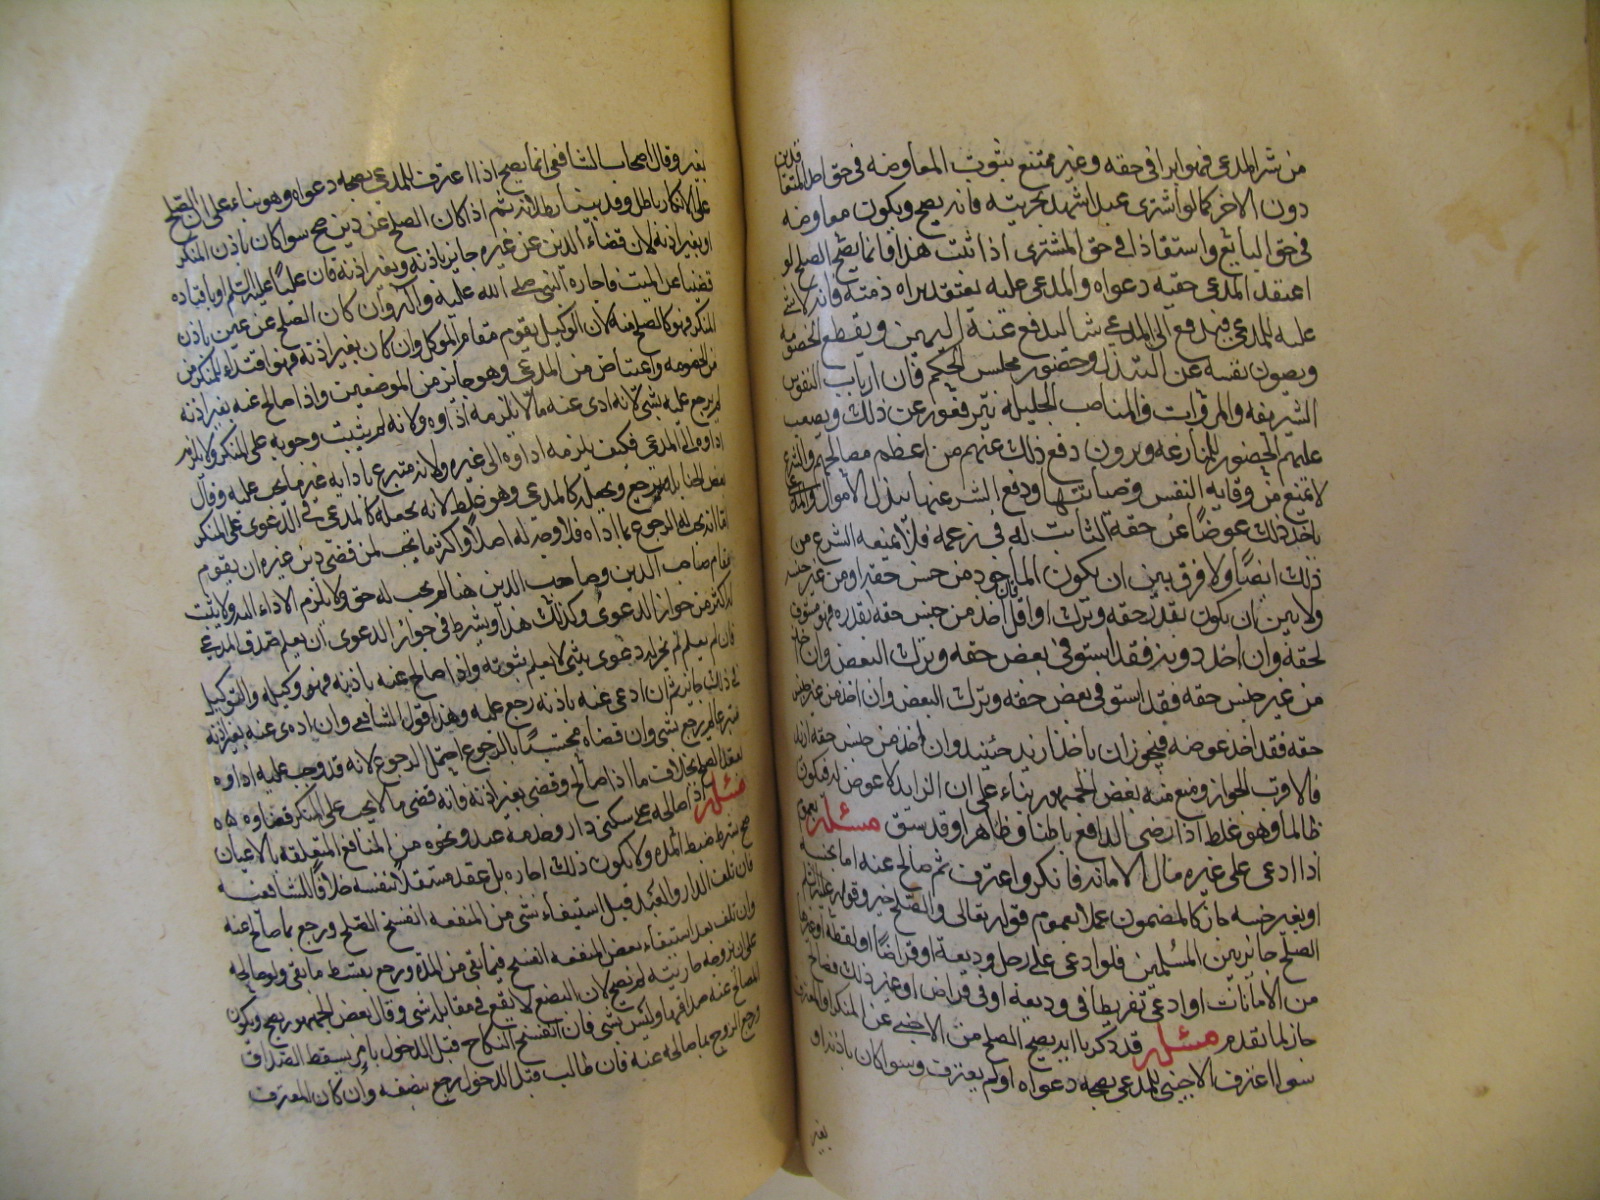 من شر المدعى فهو ابرا فى حقه وغير ممتنع ثبوت المعاوضه فى حق احد المتعاقدين
دون الاخر كما لو اشترى عبدا شهد بحريته فانه يصح ويكون معاوضه
فى حق البايع واستنقاذا فى حق المشترى اذا ثبت هذا فانما يصح الصلح لو
اعتقد المدعى حقيه دعواه والمدعى عليه يعتقد براه ذمته وانه لا شئ
عليه للمدعى فيدفع الى المدعى شيا ليدفع عنه اليمين ويقطع الخصومه
ويصون نفسه عن التبذل وحضور مجلس الحكم فان ارباب النفوس
الشريفه والمروات والمناصب الجليله يترفعون عن ذلك ويصعب
عليهم الحضور للمنازعه ويرون دفع ذلك عنهم من اعظم مصالحهم والشرع
لا يمنع من وقايه النفس وصيانتها ودفع الشر عنها ببذل الاموال والمدعى
ياخذ ذلك عوضا عن حقه الثابت له فى زعمه فلا يمنعه الشرع من
ذلك ايضا ولا فرق بين ان يكون الماخوذ من جنس حقه او من غير جنسه
ولا بين ان يكون بقدر حقه او اقل فان اخذ من جنس حقه بقدره فهو مستوف
لحقه وان اخذ دونه فقد استوفى بعض حقه وترك البعض وان
من غير جنس حقه فقد استوفى بعض حقه وترك البعض وان اخذ من غير جنس
حقه فقد اخذ عوضه فيجوز ان ياخذ ازيد حينيذ وان اخذ من جنس حقه ازيد
فالاقرب الجواز ومنع منه بعض الجمهور بناء على ان الزايد لا عوض له فيكون
ظالما وهو غلط اذا رضى الدافع باطنا وظاهرا وقد سبق مسئله
اذا ادعى على غيره مال الامانه فانكر او اعترف ثم صالح عنه اما بجنسه
او بغير جنسه جاز كالمضمون عملا بعموم قوله تعالى والصلح خير وقوله عليه السلم
الصلح جايز بين المسلمين فلو ادعى على رجل وديعه او قراضا او لقطه او غيرها
من الامانات او ادعى تفريطا فى وديعه او فى قراض او غير ذلك فصالح
جاز لما تقدم مسئله قد ذكرنا انه يصح الصلح من الاجنبى عن المنكر او المعترف
سوا اعترف الاجنبى للمدعى بصحه دعواه او لم يعترف وسوا كان باذنه او
بغير
بغيره وقال اصحاب الشافعى انما يصح اذا اعترف للمدعى بصحه دعواه وهو بناء على ان الصلح
على الانكار باطل وقد بينا بطلانه ثم اذا كان الصلح عن دين صح سوا كان باذن المنكر
او بغير اذنه لان قضاء الدين عن غيره جايز باذنه وبغير اذنه فان عليا عليه السلم وابا قتاده
قضيا عن الميت فاجازه النبى صلى الله عليه واله وان كان الصلح عن عين باذن
المنكر فهو كالصلح منه لان الوكيل يقوم مقام الموكل وان كان بغير اذنه فهو افتداء للمنكر من
من الخصومه واعتياض من المدعى وهو جايز من الموضعين واذا صالح عنه بغير اذنه
لم يرجع عليه بشئ لانه ادى عنه ما لا يلزمه اداوه ولانه لم يثبت وجوبه على المنكر ولا يلزمه
اداوه الى المدعى فكيف يلزمه اداوه الى غيره ولانه متبرع بادايه غير ما يجب عليه وقال
بعض الحنابله يرجع ويجعله كالمدعى وهو غلط لانه يجعله كالمدعى فى الدعوى على المنكر
اما انه يجب له الرجوع بما اداه فلا وجه له اصلا واكثر ما يجب لمن قضى دين غيره ان يقوم
مقام صاحب الدين وصاحب الدين هنا لم يجب له حق ولا يلزم الاداء اليه ولا يثبت
له اكثر من جواز الدعوى وكذلك هذا ويشترط فى جواز الدعوى ان يعلم صدق المدعى
فان لم يعلم لم يجز له دعوى بشئ لا يعلم ثبوته واذا صالح عنه باذنه فهو وكيله والتوكيل
فى ذلك جايز ثم ان ادى عنه باذنه رجع عليه وهذا قول الشافعى وان ادى عنه بغير اذنه
متبرعا لم يرجع بشئ وان قضاه محتسبا بالرجوع احتمل الرجوع لانه قد وجب عليه اداوه
بعقد الصلح بخلاف ما اذا صالح وقضى بغير اذنه فانه قضى ما لا يجب على المنكر قضاوه
مسئله اذا صالحه على سكنى دار وخدمه عبد ونحوه من المنافع المتعلقه بالاعيان
صح بشرط ضبط المده ولا يكون ذلك اجاره بل عقد مستقلا بنفسه خلافا للشافعيه
فان تلف الدار والعبد قبل استيفاء شئ من المنفعه انفسخ الصلح ورجع بما صالح عنه
وان تلف بعد استيفاء بعض المنفعه انفسخ فيما بقى من المده ورجع بقسط ما بقى ولو صالحه
على ان يزوجه جاريته لم يصح لان البضع لا يقع فى مقابله شئ وقال بعض الجمهور يصح ويكون
المصالح عنه صداقها وليس بشئ فان انفسخ النكاح قبل الدخول بامر يسقط الصداق
رجع الزوج بما صالحه عنه فان طالب قبل الدخول رجع بنصفه وان كان المعترف